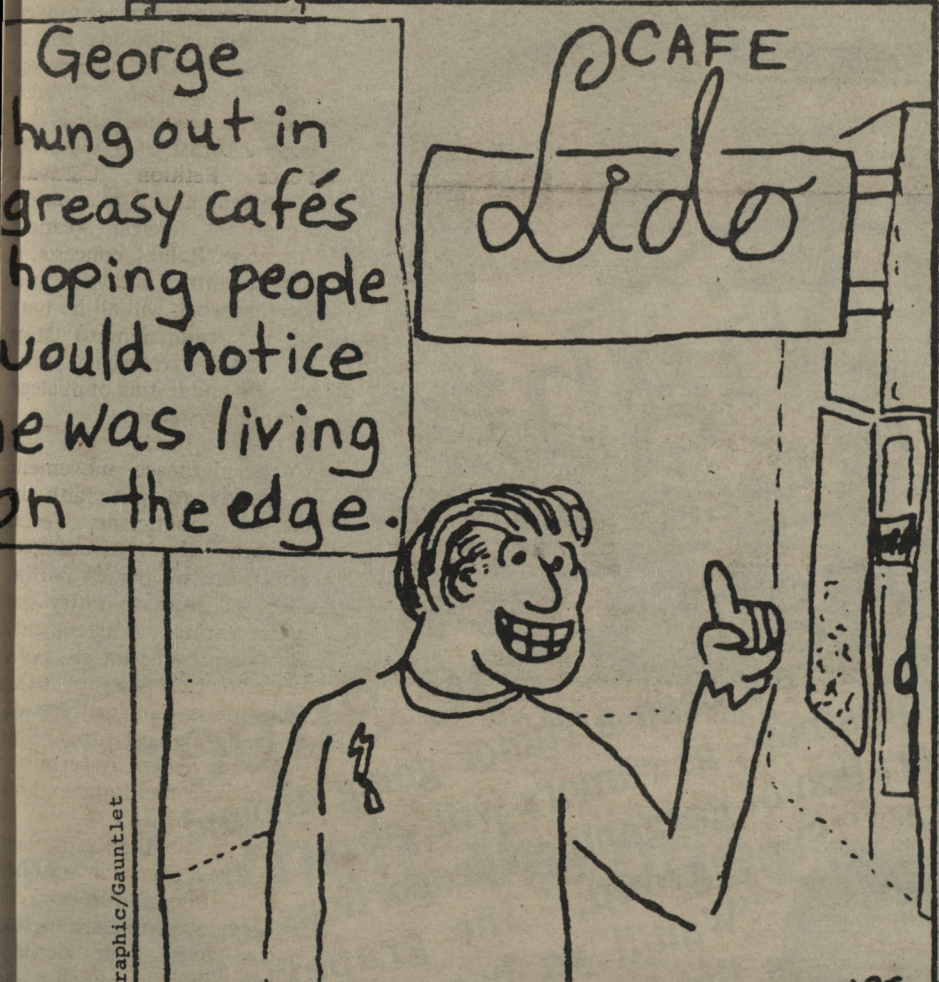 George
hung out in
greasy cafés
hoping people
would notice
he was living
on the edge.
CAFE
Lido
raphic/Gauntlet